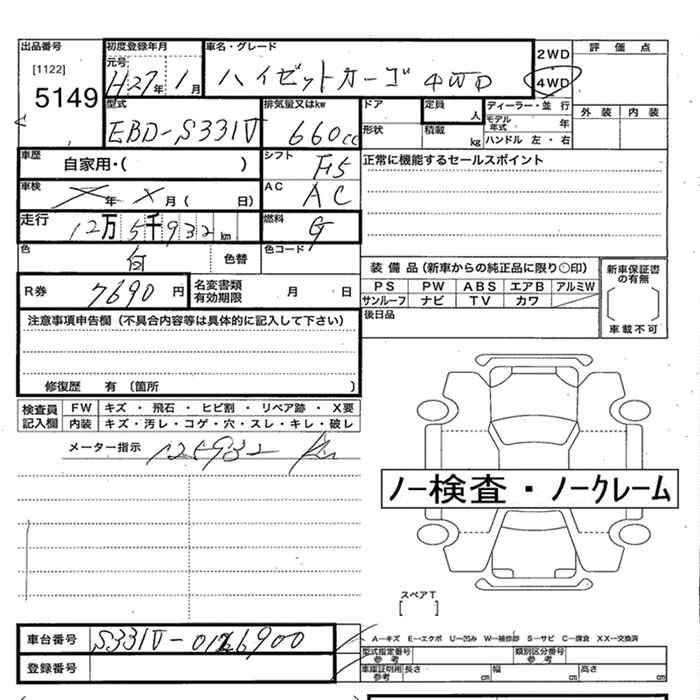 出品番号 初度登録年月 車名・グレード 2WD 評価点
[1122] 元号 H27年1月 ハイゼットカーゴ 4WD 4WD
5149 型式 排気量又はkw ドア 定員 人 ディーラー・並行 外装 内装
EBD-S331V 660cc 形状 積載 kg モデル年式 年
ハンドル 左・右
車歴 自家用・( ) シフト F5 正常に機能するセールスポイント
車検 ×年×月( 日) AC AC
走行 12万5千932km 燃料 G
色 白 色替 色コード
装備品(新車からの純正品に限り○印) 新車保証書の有無
R券 7690円 名変書類有効期限 月 日 PS PW ABS エアB アルミW
サンルーフ ナビ TV カワ
注意事項申告欄(不具合内容等は具体的に記入して下さい) 後日品 車載不可
修復歴 有(箇所 )
検査員記入欄 FW キズ・飛石・ヒビ割・リペア跡・X要
内装 キズ・汚レ・コゲ・穴・スレ・キレ・破レ
メーター指示 125932 km
ノー検査・ノークレーム
スペアT
[ ]
車台番号 S331V- A―キズ E―エクボ U―凹み W―補修跡 S―サビ C―腐食 XX―交換済
型式指定番号 参考 類別区分番号 参考
登録番号 車庫証明用 参考 長さ cm 幅 cm 高さ cm